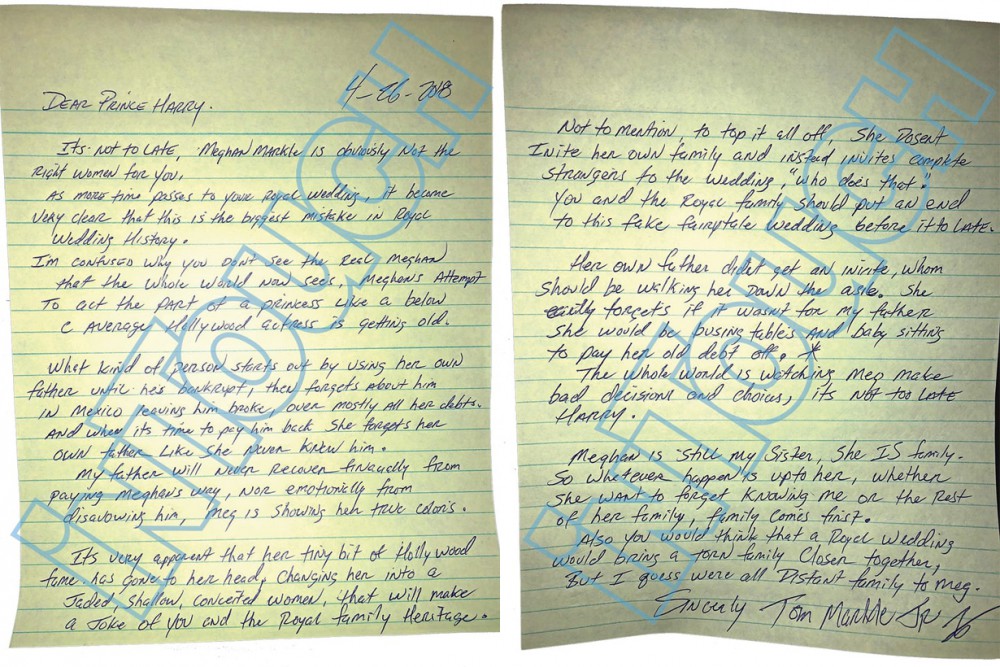 4-26-2018
DEAR PRINCE HARRY.
Its not to LATE, Meghan Markle is obviously Not the
right women for you.
As more time passes to your Royal Wedding, it became
very clear that this is the biggest mistake in Royal
Wedding History.
I'm confused why you don't see the real Meghan
that the whole world now sees, Meghans Attempt
To act the part of a princess like a below
C Average Hollywood actress is getting old.
What kind of person starts out by using her own
father until he's bankrupt, then forgets about him
in Mexico leaving him broke, over mostly all her debts.
And when its time to pay him back she forgets her
own father like she never knew him.
My father will never recover financially from
paying Meghans way, nor emotionally from
disavowing him, Meg is showing her true colors.
It's very apparent that her tiny bit of Hollywood
fame has gone to her head, changing her into a
Jaded, shallow, conceited women, that will make
a Joke of you and the Royal family Heritage.
Not to mention, to top it all off, She Dosent
Invite her own family and instead invites complete
Strangers to the wedding, "who does that."
You and the Royal family should put an end
to this fake fairytale wedding before it to LATE.
Her own father didn't get an invite, whom
should be walking her down the asle. She
forgets if it wasn't for my father
She would be busing tables and baby sitting
to pay her old debt off.
The whole world is watching Meg make
bad decisions and choices, its NOT too LATE
HARRY.
Meghan is still my Sister, She IS family.
So whatever happen is up to her, whether
She want to forget knowing me or the Rest
of her family, family comes first.
Also you would think that a Royal Wedding
would bring a torn family closer together,
But I guess were all Distant family to Meg.
Sincerly Tom Markle Jr
INTOUCH
INTOUCH